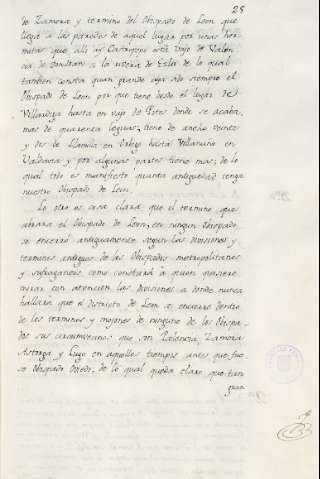 25
de Zamora y termino del Obispado de Leon que
llega a las paredes de aquel lugar por unas her
mitas que alli ay Castrogon esta vajo de Valen
cia de Donsuan a la rivera de Esla de lo qual
tambien consta quan grande aya sido siempre el
Obispado de Leon por que tiene desde el lugar de
hasta en vajo de Pites donde se acaba,
mas de quarenta leguas; tiene de ancho veinte
y des de Llamila en hasta Villanuño en
Valdavia y por algunas partes tiene mas; de lo
qual todo es manifiesto quanta antiguedad tenga
nuestro Obispado de Leon.
Lo otro es cosa clara que el termino que
abraza el Obispado de Leon, en ningun Obispado
se encerró antiguamente segun las divisiones y
terminos antiguos de los Obispados metropolitanos
y sufraganeos como constará a quien quisiere
mirar con atencion las divisiones a donde nunca
hallará que el districto de Leon se encerró dentro
de los terminos y mojones de ninguno de los Obispa-
dos sus circunvecinos que son Palencia, Zamora
Astorga y Lugo en aquellos tiempos antes que fue
se Obispado Oviedo; de lo qual queda claro que tan
gran